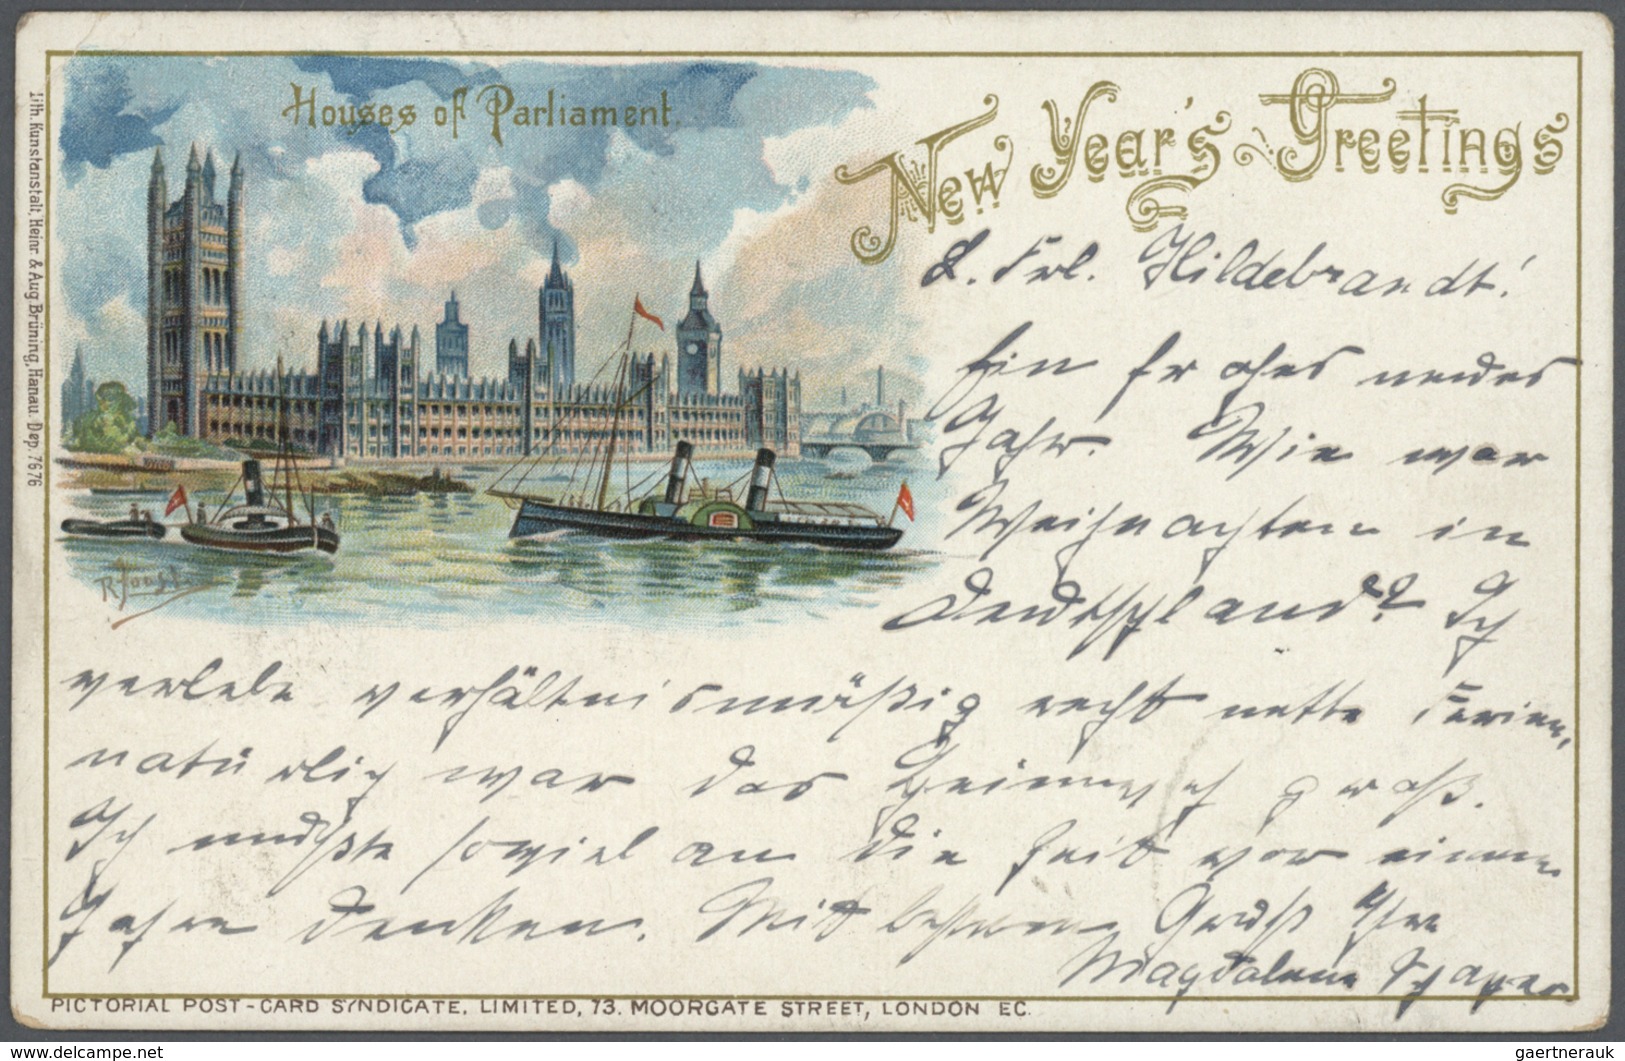 Houses of Parliament.
New Year's Greetings
Lith. Kunstanstalt, Heinr. & Aug. Brüning, Hanau. Dep. 7676
R. Joost
L. Frl. Hildebrandt!
Ein frohes neues
Jahr. Wie war
Weihnachten in
Deutschland? Ich
verlebe verhältnismäßig recht nette Ferien,
natürlich war das Heimweh groß.
Ich mußte soviel an die Zeit vor einem
Jahre denken. Mit bestem Gruß Ihre
Magdalene Schaper.
PICTORIAL POST-CARD SYNDICATE, LIMITED, 73. MOORGATE STREET, LONDON EC.
www.delcampe.net
gaertnerauk